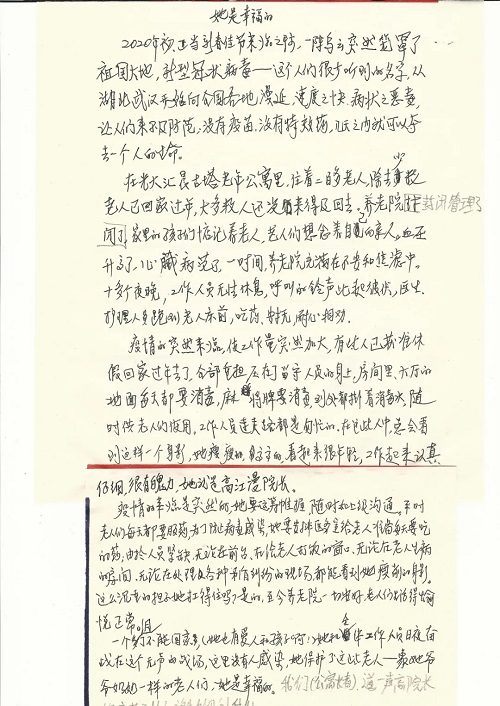 她是幸福的
2020年初,正当新春佳节来临之时,一阵乌云突然笼罩了
祖国大地,新型冠状病毒——这个人们很少听到的名字,从
湖北武汉开始向全国各地漫延,速度之快,病状之恶毒,
让人们来不及防范,没有疫苗,没有特效药,几天之内就可以夺
去一个人的生命。
在光大汇晨古塔老年公寓里,住着二百多老人,除去少数
老人已回家过年,大多数人还没来得及回去。养老院封闭管理了
家里的孩子们惦记着老人,老人们想念着自己的亲人,血压
升高了,心臟病犯了,一时间,养老院充满在不安和焦虑中。
十多个夜晚,工作人员无法休息,呼叫的铃声此起彼伏,医生
护理人员跑到老人床前,吃药、安抚、耐心相劝。
疫情的突然来临,使工作量突然加大,有些人已节准休
假回家过年去了,全部重担压在了当守人员的身上,房间里、六层的
地面每天都要消毒,麻将牌要消毒,到处都挂着消毒水,随
时供老人们使用。工作人员连走路都是匆忙的。在这些人中,总会看
到这样一个身影,她瘦瘦的,高高的,看起来很年轻,工作起来认真
仔细,很有魄力,她就是高江漫院长。
疫情的来临是突然的,她要运筹帷幄,随时和上级沟通。平时
老人们每天都要服药,为了防止病毒感染,她要安排医务室给老人准备每天要吃
的药;由于人员紧缺,无论在前台,在给老人打饭的窗口,无论在老人生病
的房间,无论在处理及各种矛盾纠纷的现场,都能看到她瘦弱的身影。
这么沉重的担子她扛得住吗?是的,至今养老院一切皆好,老人们生活得愉
悦正常。
一个多月不能回家(她也有爱人和孩子啊!)她和全体工作人员日夜奋
战在这个无声的战场,这里没有人感染,她保护了这些老人——象她爷
爷奶奶一样的老人们,她是幸福的。我们(公寓长者)道一声高院长